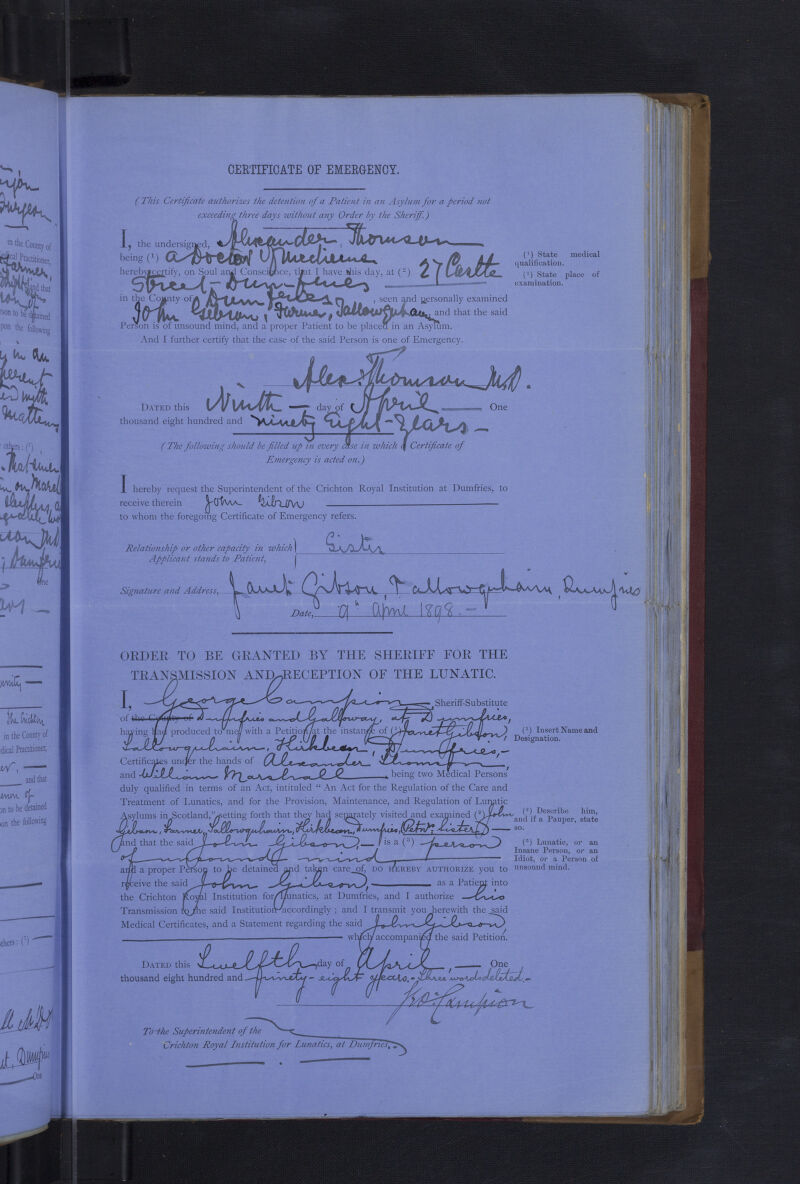 CERTIFICATE OF EMERGENCY.
(This Certificate authorizes the detention of a Patient in an Asylum for a period not
exceeding three days without any Order by the Sheriff.)
I, the undersigned, Alexander Thomson
being (¹) a Doctor of Medicine
hereby certify, on Soul and Conscience, that I have this day, at (²) 27 Castle
Street - Dumfries
in the County of Dumfries, seen and personally examined
John Gibson, Farmer, Tallowquhairn, and that the said
Person is of unsound mind, and a proper Patient to be placed in an Asylum.
And I further certify that the case of the said Person is one of Emergency.
(¹) State medical
qualification.
(²) State place of
examination.
Alex: Thomson M.D.
DATED this Ninth — day of April — One
thousand eight hundred and ninety Eight - Years —
(The following should be filled up in every case in which a Certificate of
Emergency is acted on.)
I hereby request the Superintendent of the Crichton Royal Institution at Dumfries, to
receive therein John Gibson
to whom the foregoing Certificate of Emergency refers.
Relationship or other capacity in which
Applicant stands to Patient,
Sister
Signature and Address, Janet Gibson, Tallowquhairn, Dumfries
Date, 9th April 1898. —
ORDER TO BE GRANTED BY THE SHERIFF FOR THE
TRANSMISSION AND RECEPTION OF THE LUNATIC.
I, George Campion, Sheriff-Substitute
of the County of Dumfries and Galloway, at Dumfries,
having had produced to me, with a Petition at the instance of (³) Janet Gibson,
Tallowquhairn, Kirkbean, Dumfries, —
Certificates under the hands of Alexander Thomson,
and William Marshall, being two Medical Persons
duly qualified in terms of an Act, intituled "An Act for the Regulation of the Care and
Treatment of Lunatics, and for the Provision, Maintenance, and Regulation of Lunatic
Asylums in Scotland," setting forth that they had separately visited and examined (⁴) John
Gibson, Farmer, Tallowquhairn, Kirkbean, Dumfries, (Petnrs. Sister) —
and that the said John Gibson, — is a (⁵) person
of unsound mind,
and a proper Person to be detained and taken care of, DO HEREBY AUTHORIZE you to
receive the said John Gibson, — as a Patient into
the Crichton Royal Institution for Lunatics, at Dumfries, and I authorize his
Transmission to the said Institution accordingly; and I transmit you herewith the said
Medical Certificates, and a Statement regarding the said John Gibson,
which accompanied the said Petition.
(³) Insert Name and
Designation.
(⁴) Describe him,
and if a Pauper, state
so.
(⁵) Lunatic, or an
Insane Person, or an
Idiot, or a Person of
unsound mind.
DATED this Twelfth day of April, — One
thousand eight hundred and ninety-eight years. - Three words deleted. -
Geo: Campion
To the Superintendent of the
Crichton Royal Institution for Lunatics, at Dumfries.